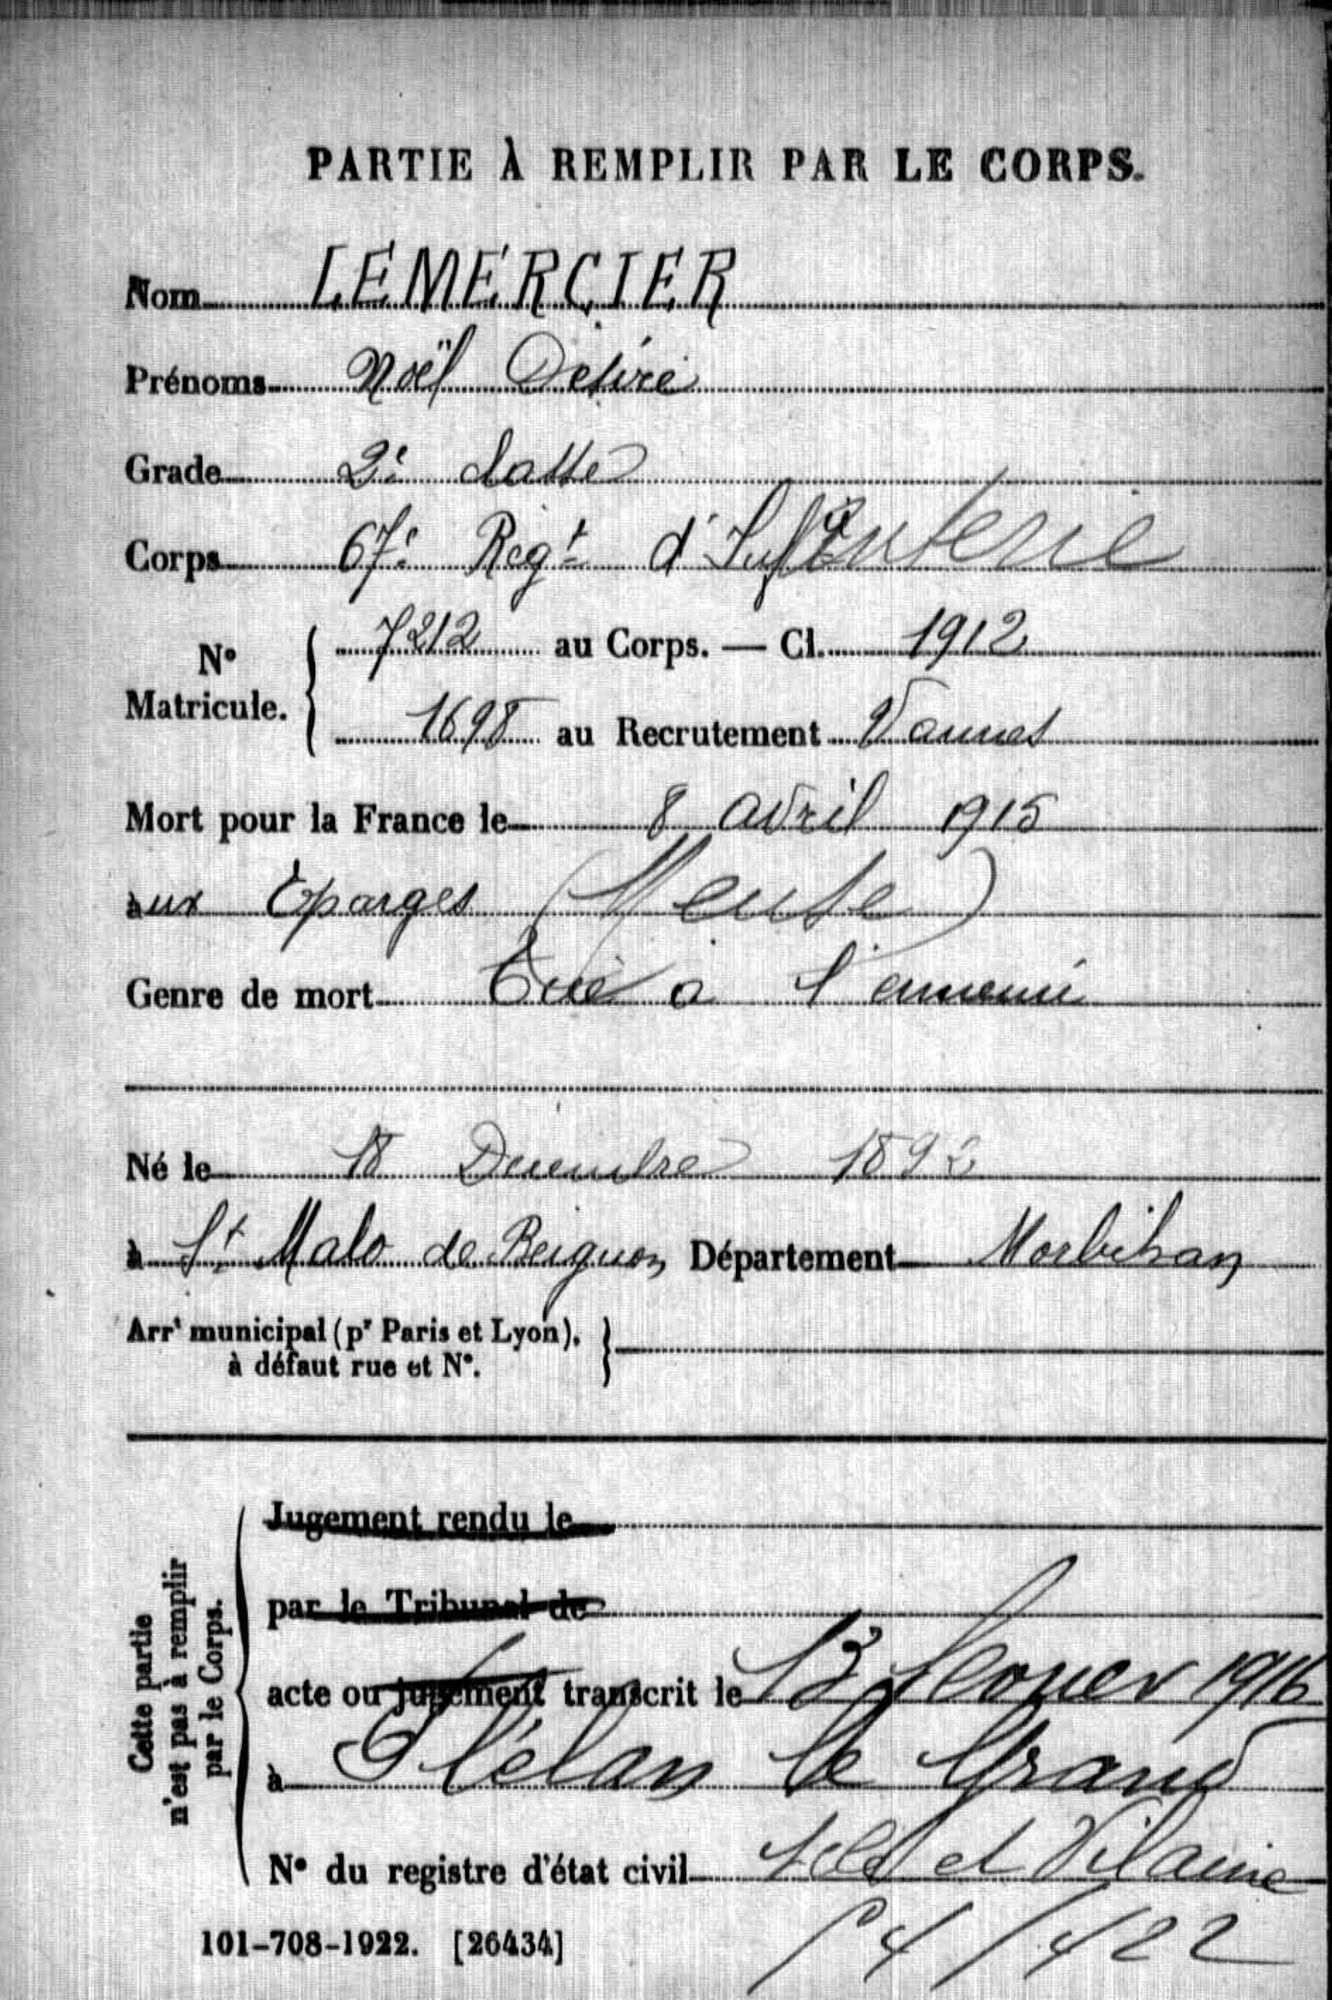 PARTIE À REMPLIR PAR LE CORPS.
Nom LEMERCIER
Prénoms Noël Désiré
Grade 2e classe
Corps 67e Regt d'Infanterie
No Matricule. 7212 au Corps. — Cl. 1912
1698 au Recrutement Vannes
Mort pour la France le 8 avril 1915
aux Eparges (Meuse)
Genre de mort Tué à l'ennemi
Né le 18 Decembre 1892
à St Malo de Beignon Département Morbihan
Arrt municipal (pr Paris et Lyon),
à défaut rue et No.
Cette partie
n'est pas à remplir
par le Corps.
Jugement rendu le
par le Tribunal de
acte ou jugement transcrit le 13 fevrier 1916
à Plélan le Grand
No du registre d'état civil Ille et Vilaine
101-708-1922. [26434]